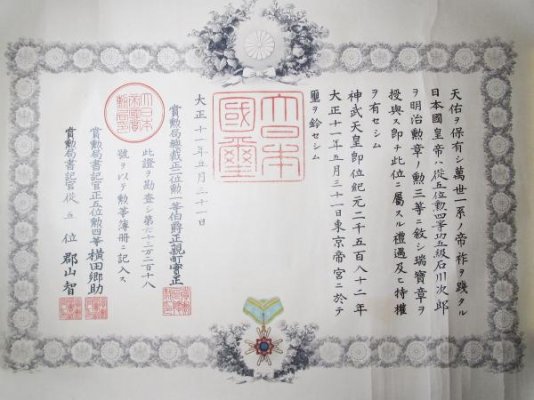 天佑ヲ保有シ萬世一系ノ帝祚ヲ踐タル
日本國皇帝ハ從五位勲四等功五級石川次郎
ヲ明治勲章ノ勲三等ニ敘シ瑞寶章ヲ
授與ス即チ此位ニ屬スル禮遇及ヒ特權
ヲ有セシム
神武天皇即位紀元二千五百八十二年
大正十一年五月三十一日東京帝宮ニ於テ
璽ヲ鈐セシム
大日本
國璽
大正十一年五月三十一日
賞勲局總裁正二位勲一等伯爵正親町實正
此證ヲ勘査シ第六十二万二百十八
號ヲ以テ勲等簿冊ニ記入ス
賞勲局書記官正五位勲四等横田郷助
賞勲局書記官從五位郡山智